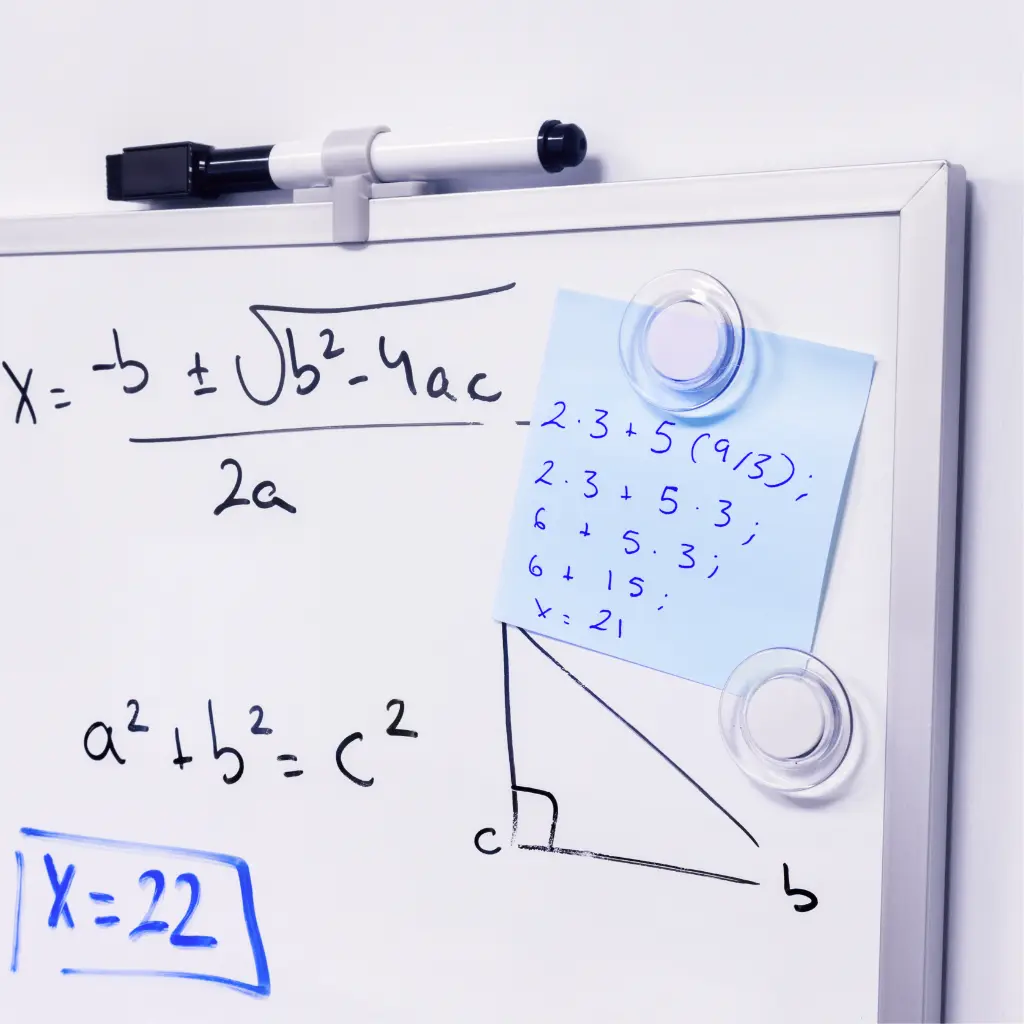 x = -b ± √b² - 4ac
2a
2·3 + 5 (9/3);
2·3 + 5·3;
6 + 5·3;
6 + 15;
x = 21
a² + b² = c²
c
b
X = 22